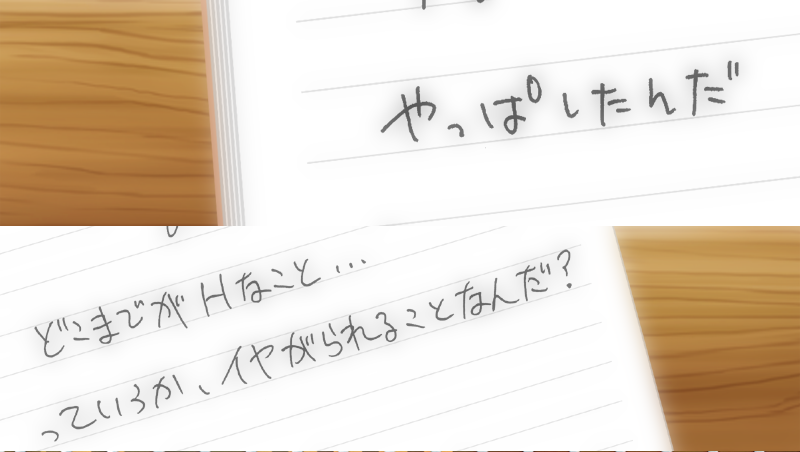 やっぱしたんだ
どこまでがHなこと…
っていうか、イヤがられることなんだ?